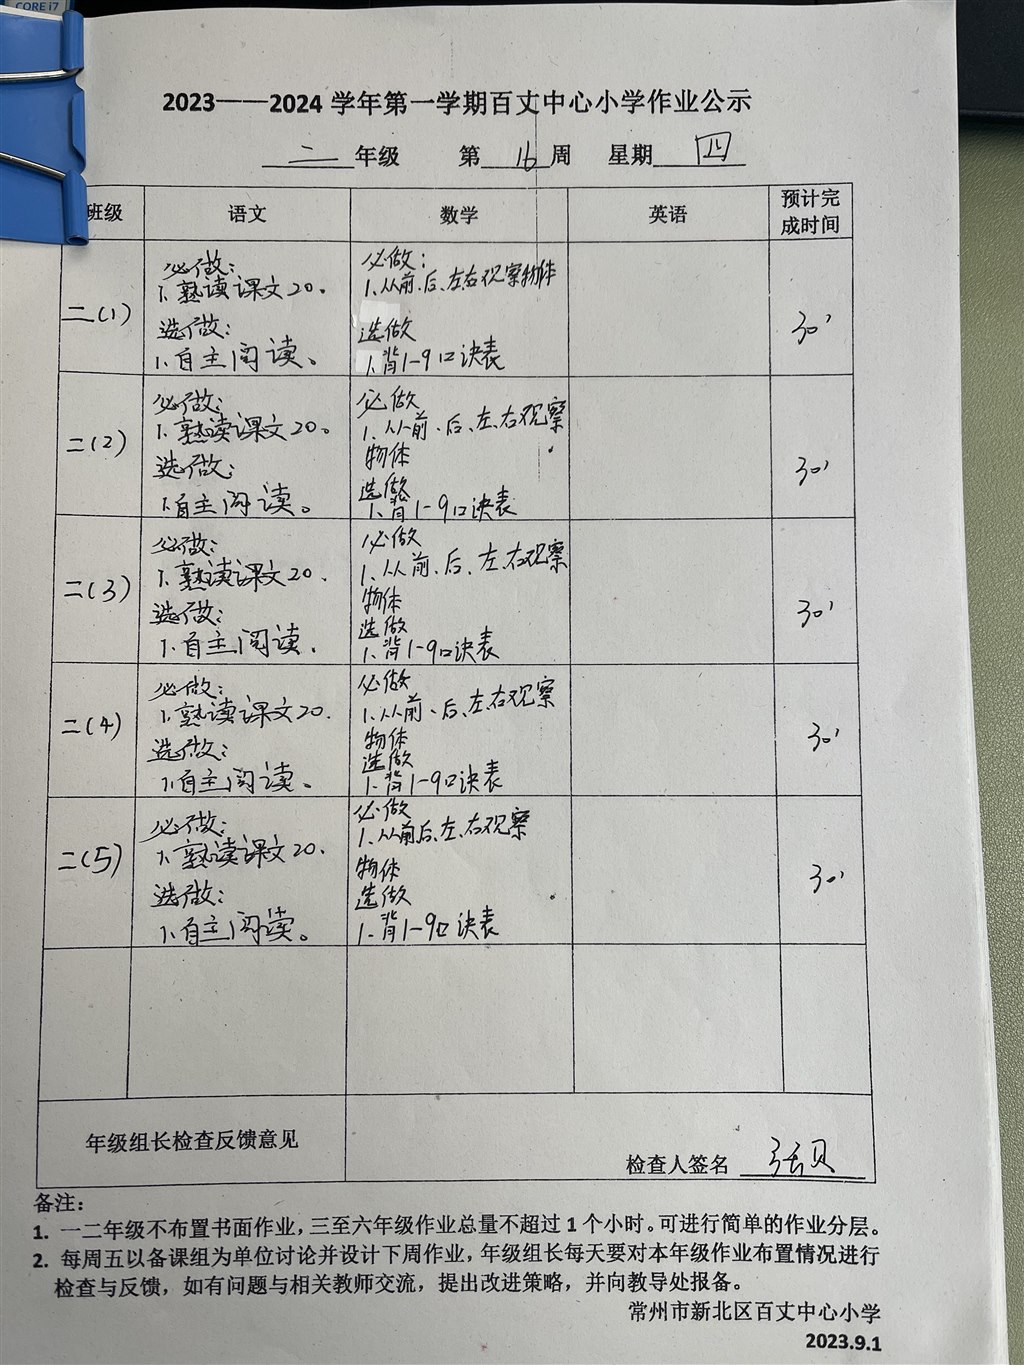 CORE i7
2023——2024 学年第一学期百丈中心小学作业公示
二 年级 第 16 周 星期 四
班级 语文 数学 英语 预计完成时间
二(1)
必做:
1. 熟读课文20。
选做:
1. 自主阅读。
必做:
1、从前、后、左右观察物体
选做
1. 背1-9口诀表
30'
二(2)
必做:
1. 熟读课文20。
选做:
1. 自主阅读。
必做
1. 从前、后、左、右观察
物体
选做
1. 背1-9口诀表
30'
二(3)
必做:
1. 熟读课文20.
选做:
1. 自主阅读.
必做
1. 从前、后、左、右观察
物体
选做
1. 背1-9口诀表
30'
二(4)
必做:
1. 熟读课文20.
选做:
1. 自主阅读。
必做
1. 从前、后、左、右观察
物体
选做
1. 背1-9口诀表
30'
二(5)
必做:
1. 熟读课文20.
选做:
1. 自主阅读。
必做
1. 从前后、左、右观察
物体
选做
1. 背1-9口诀表
30'
年级组长检查反馈意见
检查人签名 张贝
备注:
1. 一二年级不布置书面作业，三至六年级作业总量不超过 1 个小时。可进行简单的作业分层。
2. 每周五以备课组为单位讨论并设计下周作业，年级组长每天要对本年级作业布置情况进行
检查与反馈，如有问题与相关教师交流，提出改进策略，并向教导处报备。
常州市新北区百丈中心小学
2023.9.1